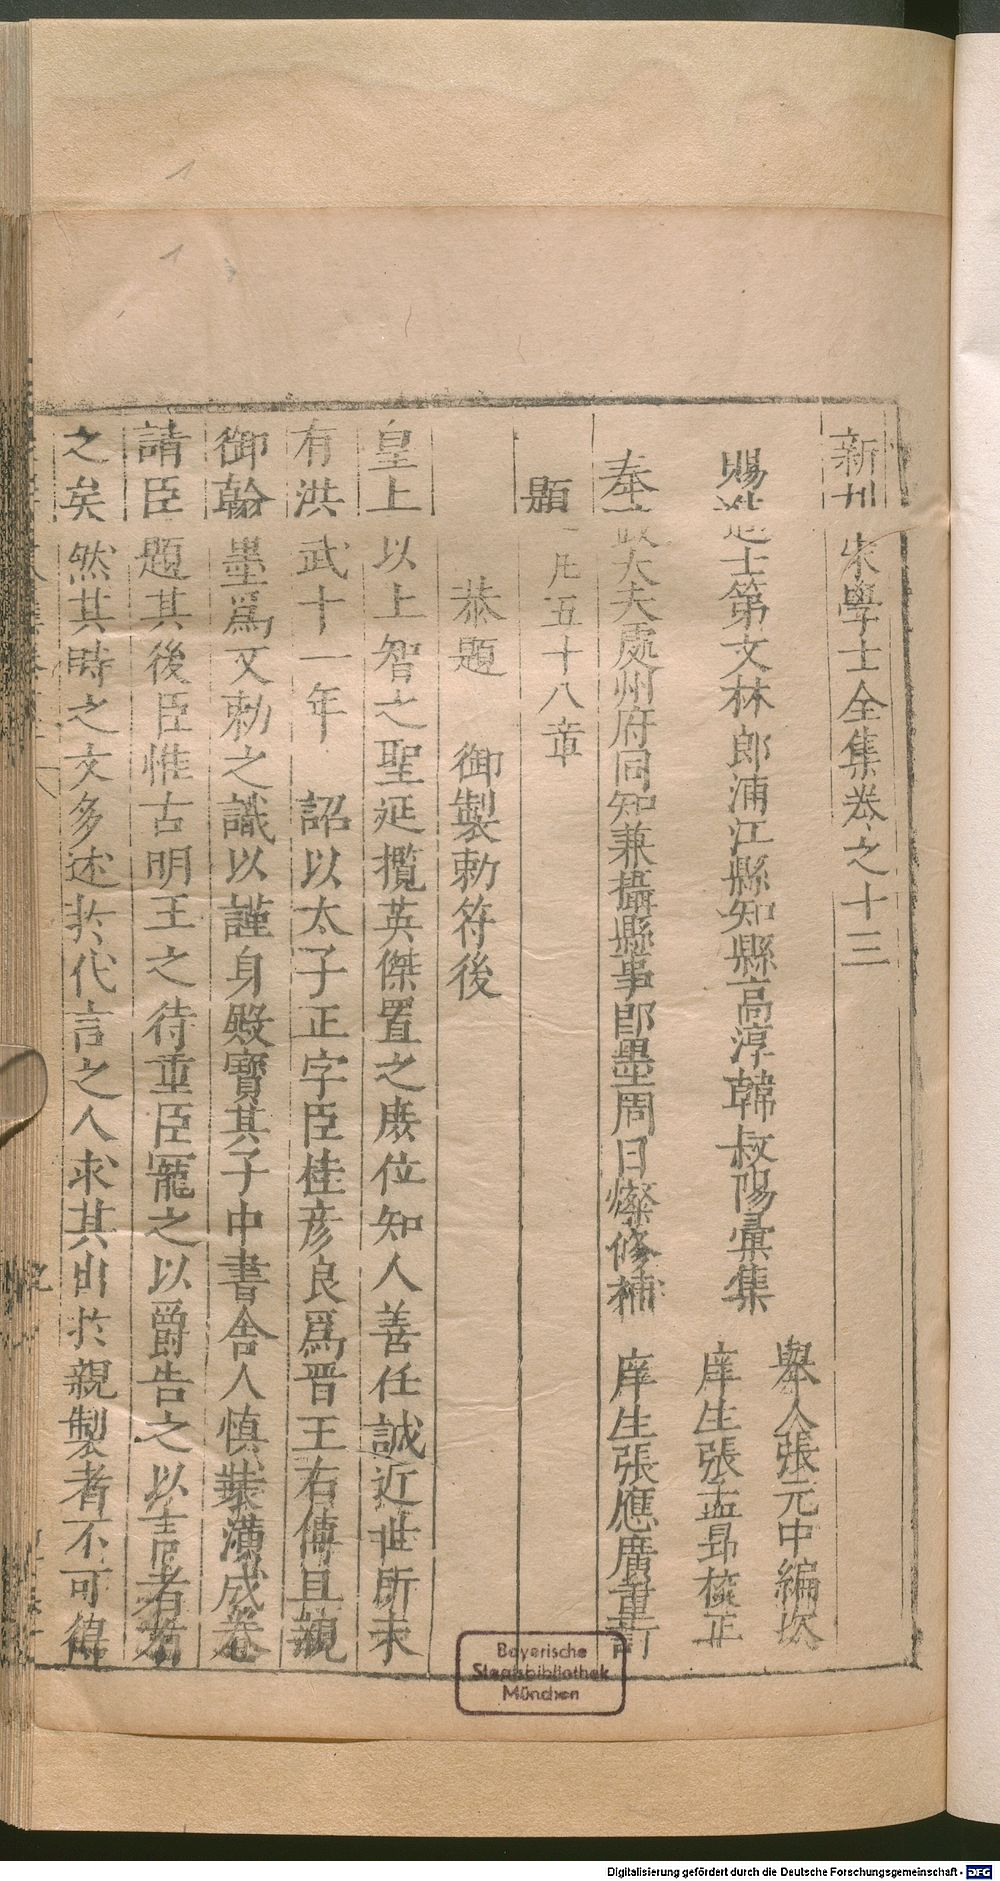 新刊宋學士全集卷之十三
賜進士第文林郎浦江縣知縣高淳韓叔陽彙集
舉人張元中編次
庠生張孟昂校正
奉政大夫處州府同知兼攝縣事卽墨周日燦修補
庠生張應廣重訂
題 凡五十八章
恭題 御製勅符後
皇上以上智之聖延攬英傑置之庶位知人善任誠近世所未
有洪武十一年 詔以太子正字臣桂彦良爲晋王右傅且親
御翰墨爲文勅之識以謹身殿寳其子中書舍人慎裝潢成卷
請臣題其後臣惟古明王之待重臣寵之以爵告之以言者有
之矣然其時之文多述扵代言之人求其由扵親製者不可得
Bayerische
Staatsbibliothek
München
Digitalisierung gefördert durch die Deutsche Forschungsgemeinschaft - DFG